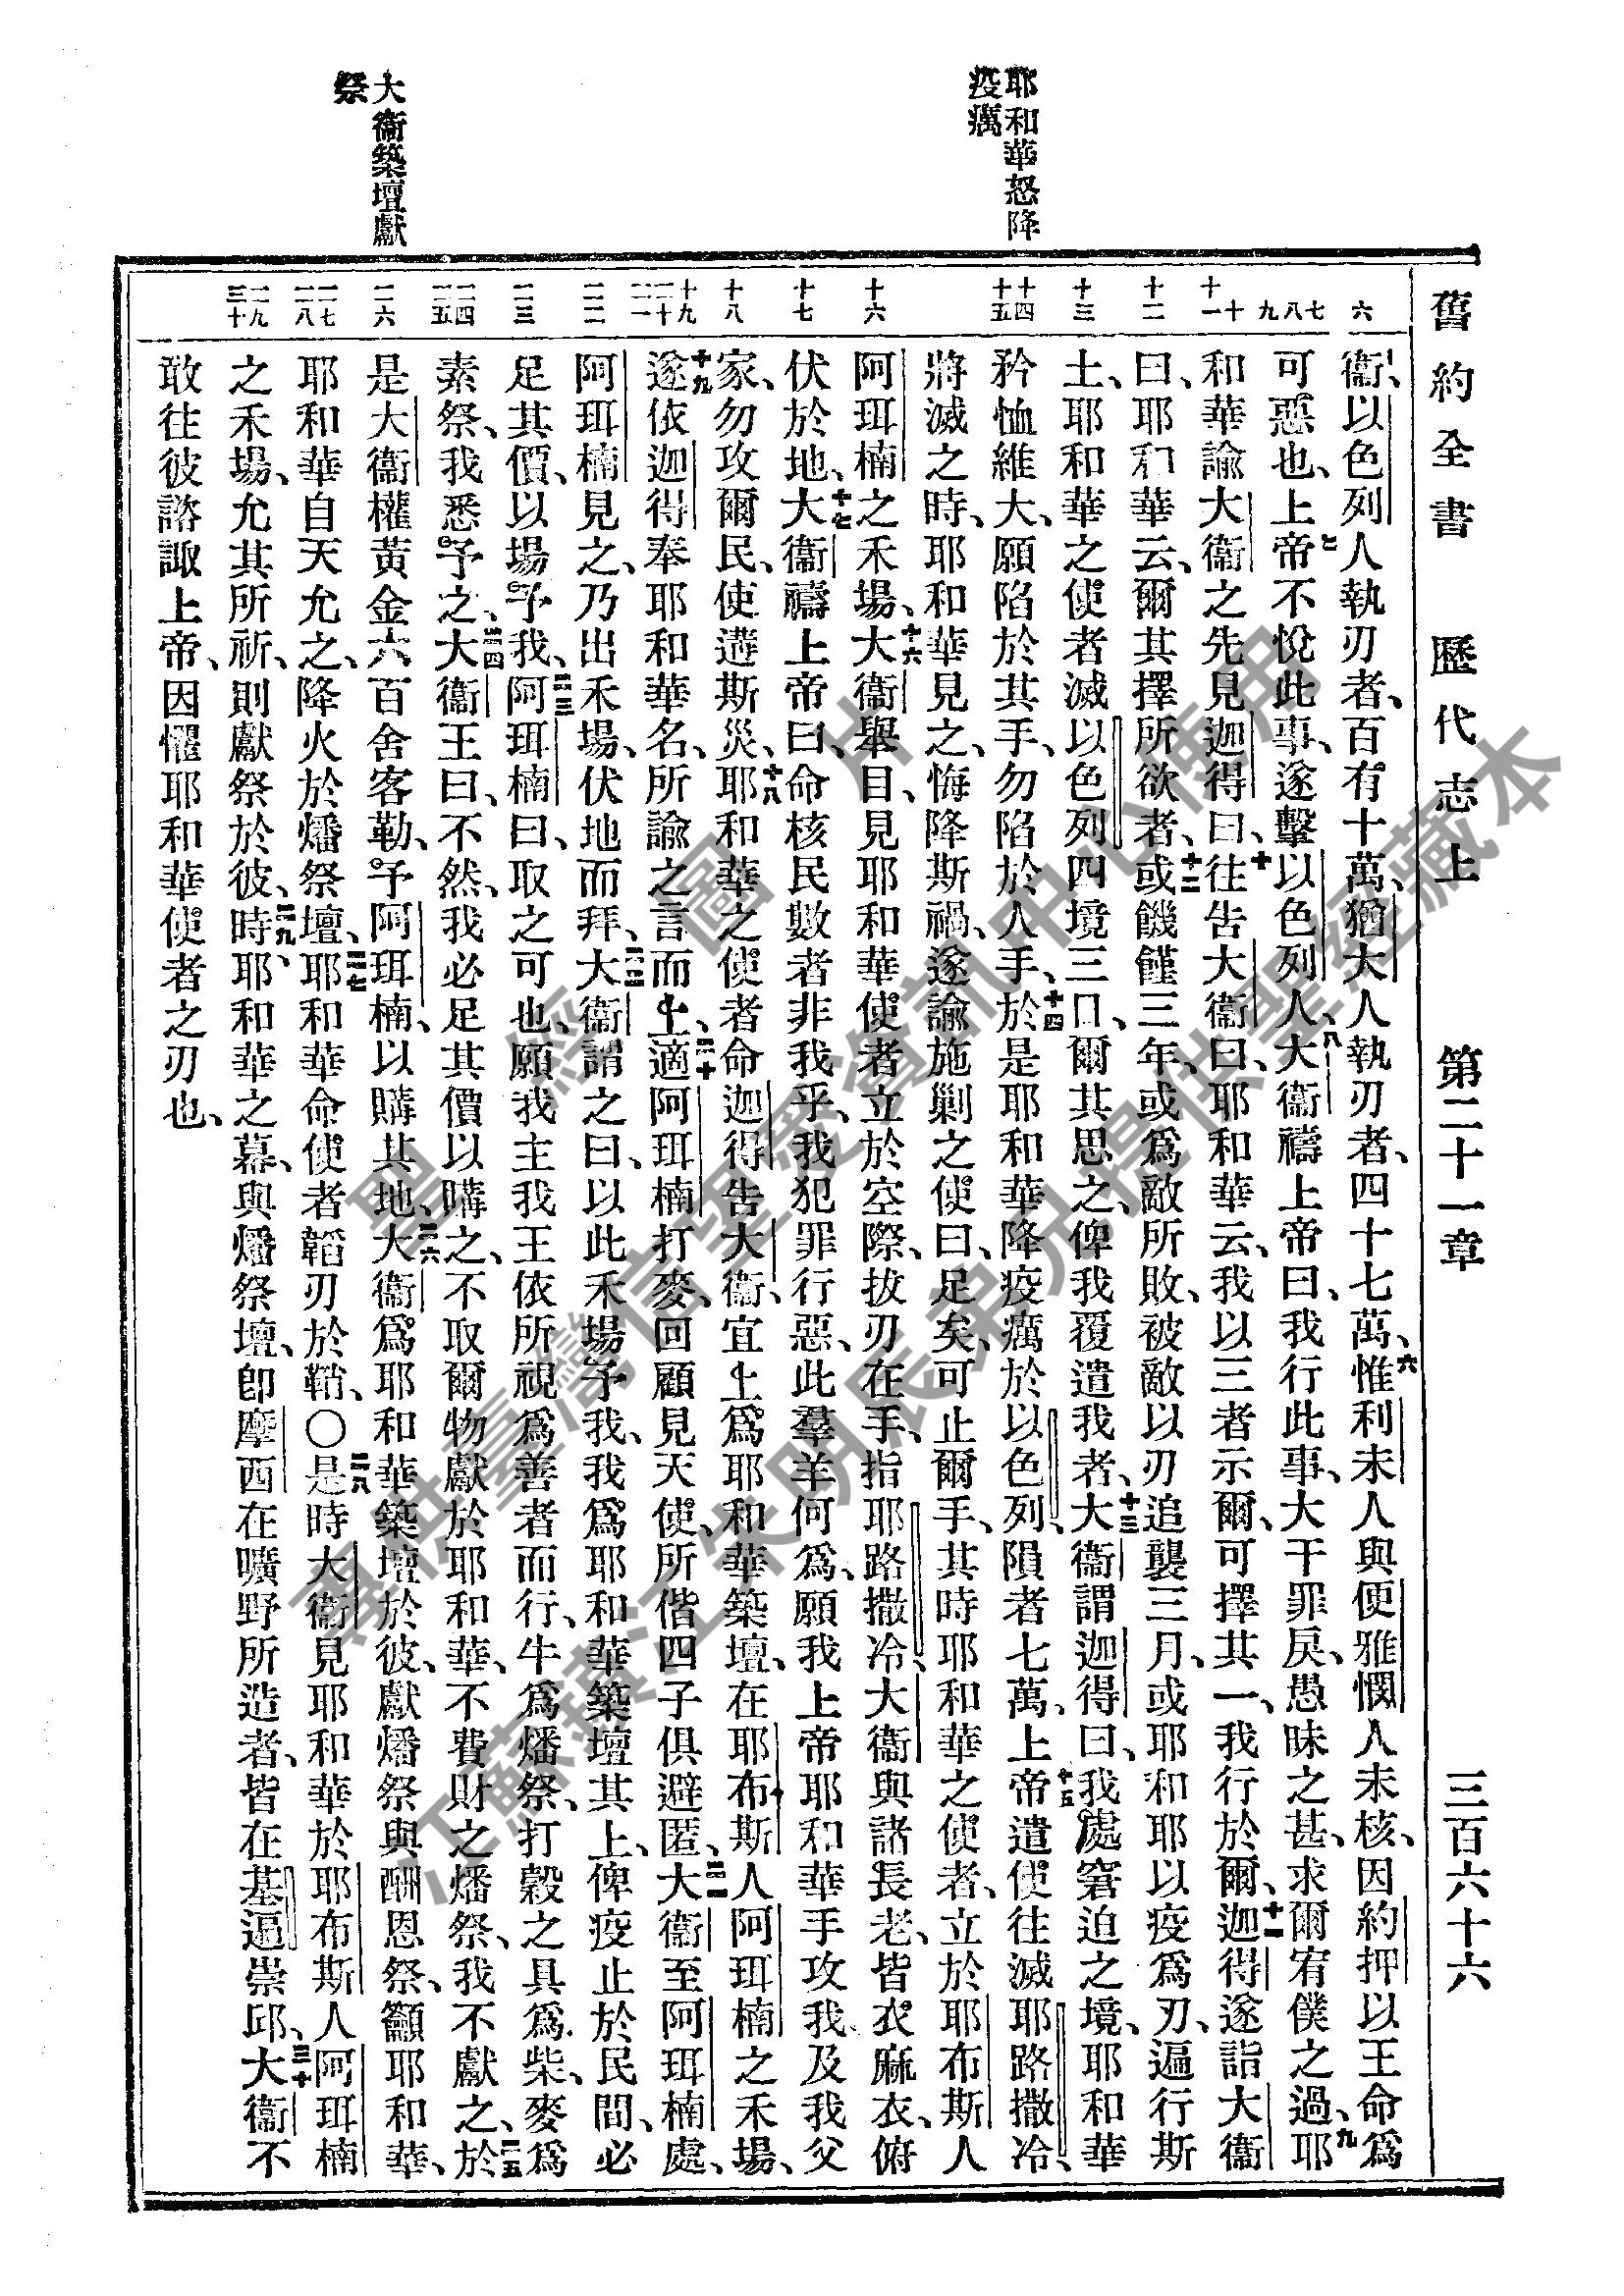 舊約全書 歷代志上 第二十一章 三百六十六
耶和華怒降
疫癘
大衞築壇獻
祭
六
七八九
十
十一
十二
十三
十四
十五
十六
十七
十八
十九
二十
二一
二二
二三
二四
二五
二六
二七
二八
二九
三十
衞、以色列人執刃者、百有十萬、猶大人執刃者、四十七萬、六惟利未人與便雅憫人未核、因約押以王命爲
可惡也、七上帝不悅此事、遂擊以色列人、八大衞禱上帝曰、我行此事、大干罪戾、愚昧之甚、求爾宥僕之過、九耶
和華諭大衞之先見迦得曰、十往告大衞曰、耶和華云、我以三者示爾、可擇其一、我行於爾、十一迦得遂詣大衞
曰、耶和華云、爾其擇所欲者、十二或饑饉三年、或爲敵所敗、被敵以刃追襲三月、或耶和耶以疫爲刃、遍行斯
土、耶和華之使者滅以色列四境三日、爾其思之、俾我覆遣我者、十三大衞謂迦得曰、我處窘迫之境、耶和華
矜恤維大、願陷於其手、勿陷於人手、十四於是耶和華降疫癘於以色列、隕者七萬、十五上帝遣使往滅耶路撒冷、
將滅之時、耶和華見之、悔降斯禍、遂諭施剿之使曰、足矣、可止爾手、其時耶和華之使者、立於耶布斯人
阿珥楠之禾場、十六大衞舉目、見耶和華使者立於空際、拔刃在手、指耶路撒冷、大衞與諸長老、皆衣麻衣、俯
伏於地、十七大衞禱上帝曰、命核民數者非我乎、我犯罪行惡、此羣羊何爲、願我上帝耶和華手攻我及我父
家、勿攻爾民、使遘斯災、十八耶和華之使者命迦得告大衞、宜上爲耶和華築壇、在耶布斯人阿珥楠之禾場、
十九遂依迦得奉耶和華名、所諭之言而上、二十適阿珥楠打麥、回顧見天使、所偕四子俱避匿、二一大衞至阿珥楠處、
阿珥楠見之、乃出禾場、伏地而拜、二二大衞謂之曰、以此禾場予我、我爲耶和華築壇其上、俾疫止於民間、必
足其價、以場予我、二三阿珥楠曰、取之可也、願我主我王依所視爲善者而行、牛爲燔祭、打穀之具爲柴、麥爲
素祭、我悉予之、二四大衞王曰、不然、我必足其價以購之、不取爾物獻於耶和華、不費財之燔祭、我不獻之、二五於
是大衞權黃金六百舍客勒、予阿珥楠、以購其地、二六大衞爲耶和華築壇於彼、獻燔祭與酬恩祭、籲耶和華、
耶和華自天允之、降火於燔祭壇、二七耶和華命使者韜刃於鞘、〇二八是時大衞見耶和華於耶布斯人阿珥楠
之禾場、允其所祈、則獻祭於彼、二九時、耶和華之幕、與燔祭壇、卽摩西在曠野所造者、皆在基遍崇邱、三十大衞不
敢往彼諮諏上帝、因懼耶和華使者之刃也、
聖經圖片
專供臺灣信望愛資訊中心使用
江蘇鎮江朱明辰弟兄提供聖經藏本